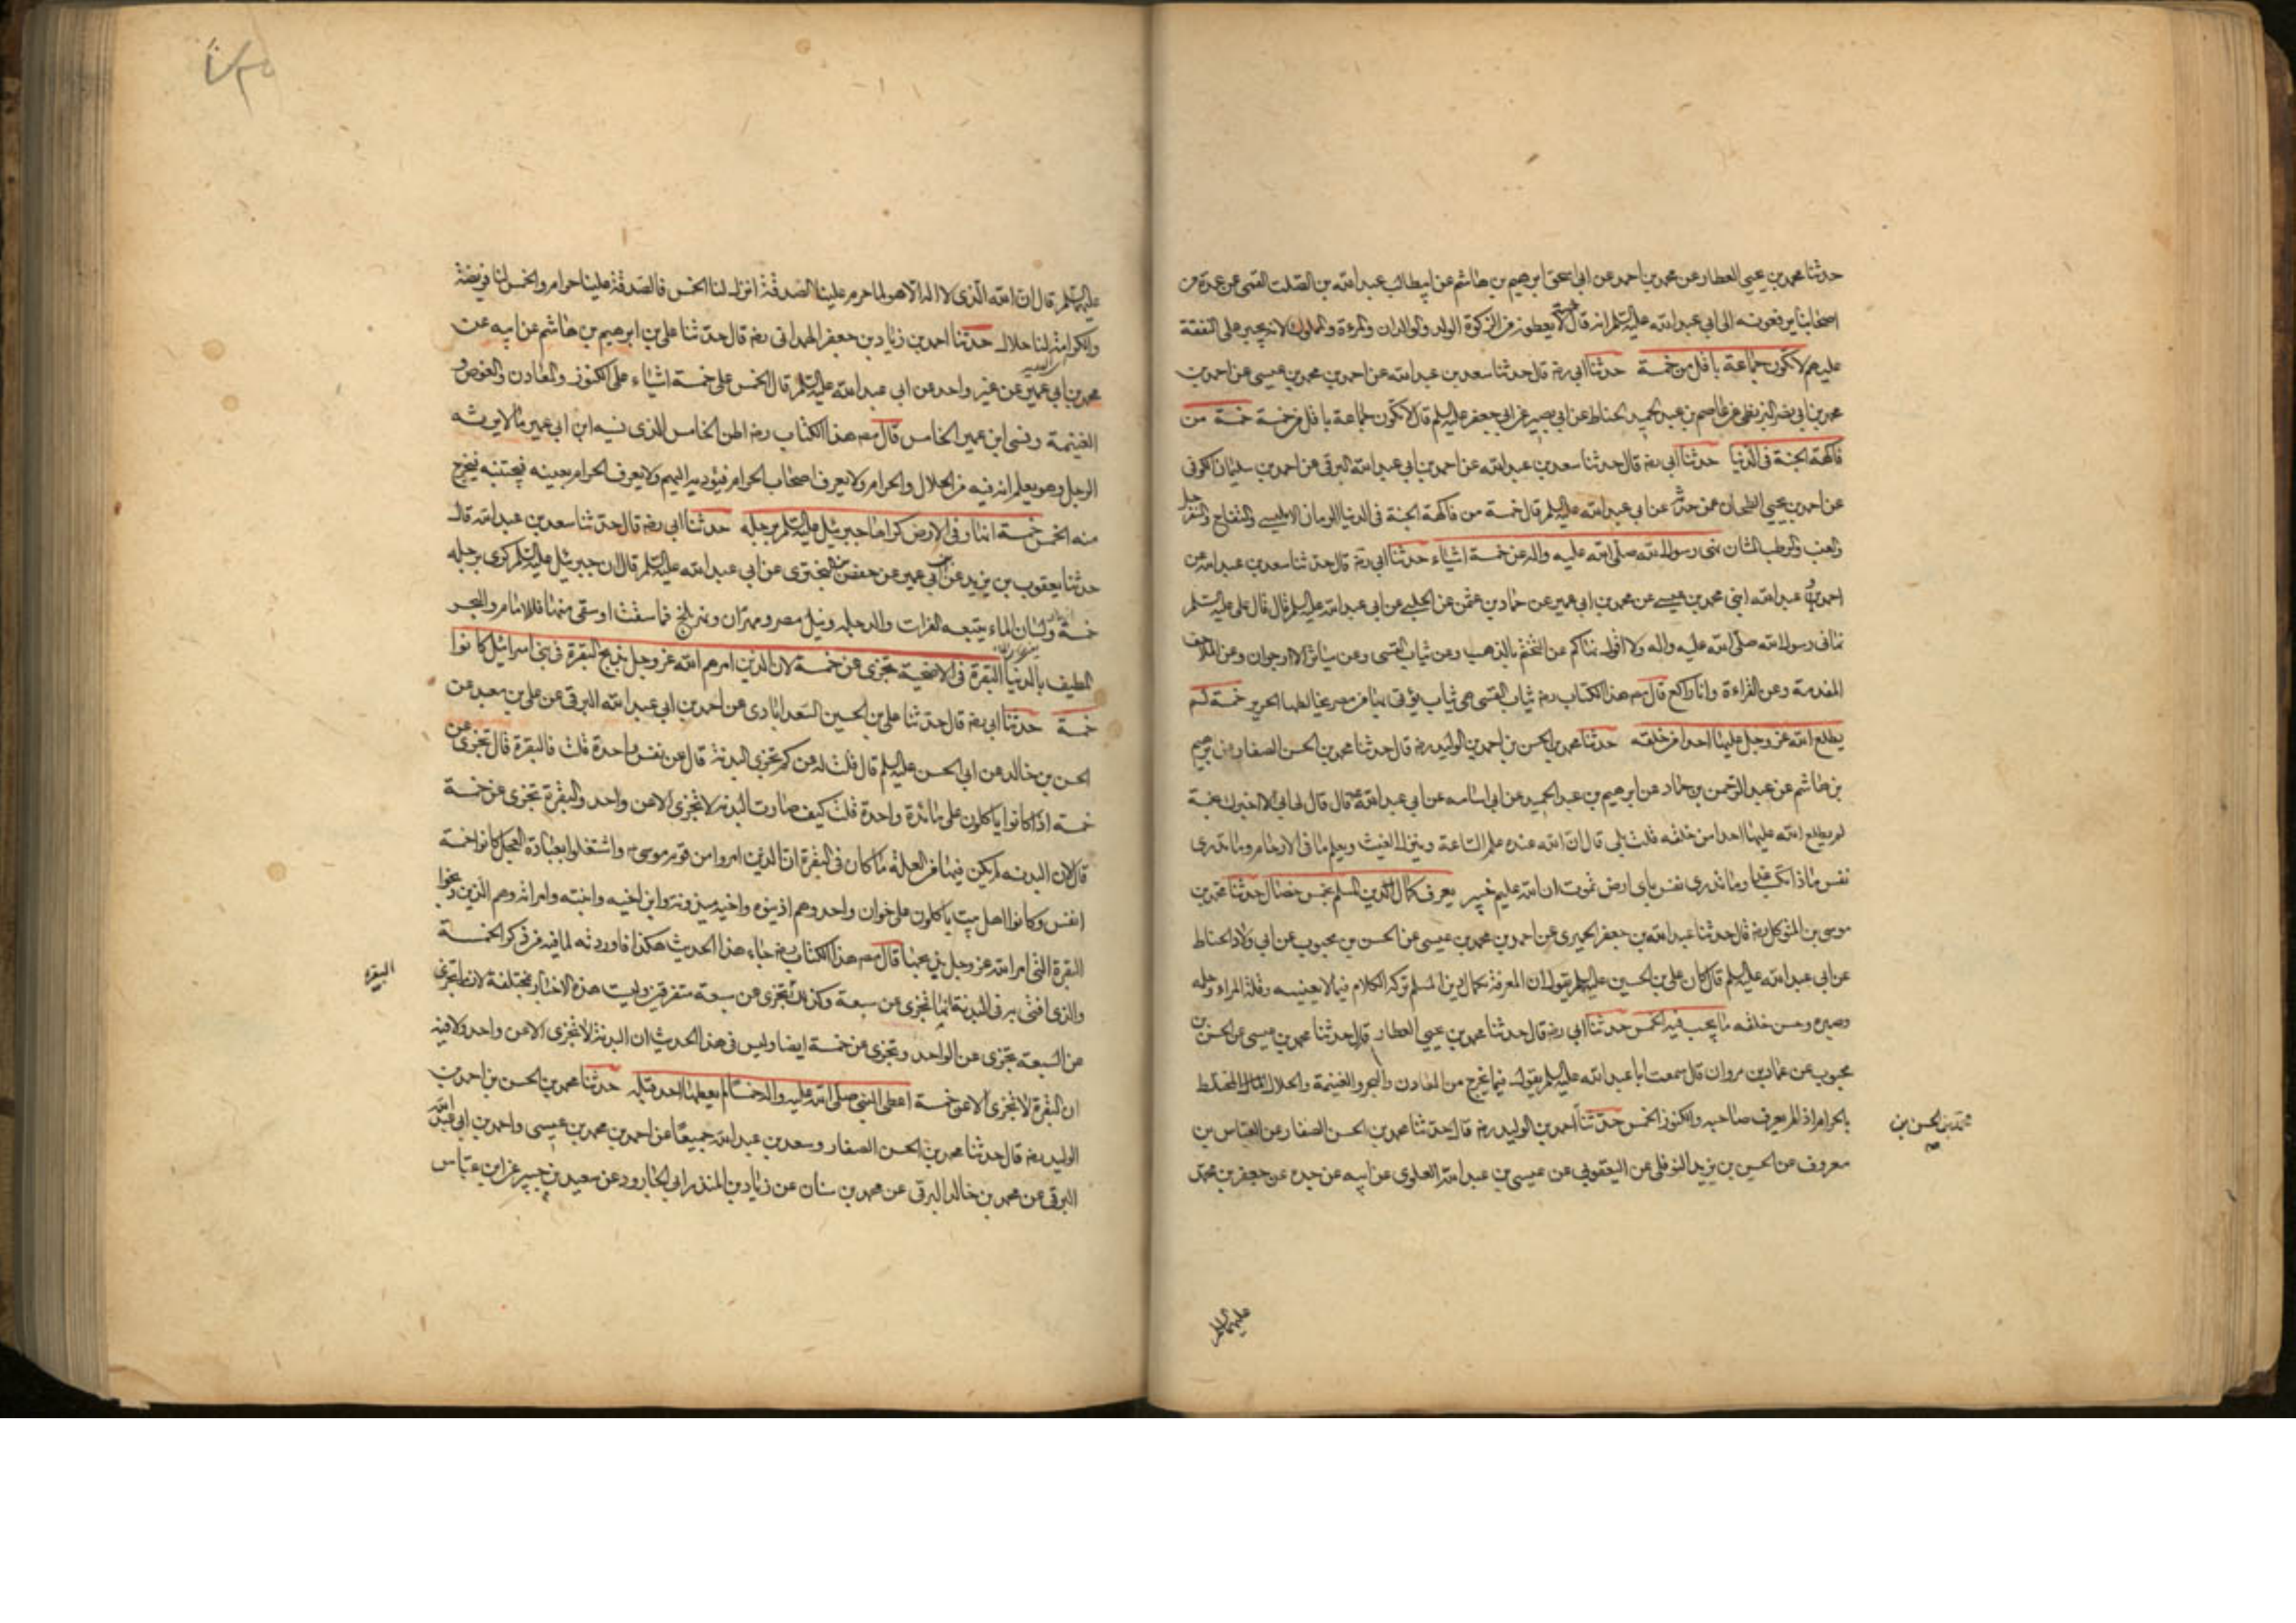 حدثنا محمد بن يحيى العطار عن محمد بن احمد عن ابى اسحق ابرهيم بن هاشم عن ابيطالب عبد الله بن الصلت القمى عن عدة من
اصحابنا يرفعونه الى ابى عبد الله عليه السلم انه قال خمسة لا يعطون من الزكوة الولد والوالدان والمرءة والمملوك لانه يجبر على النفقة
عليهم لا تكون جماعة باقل من خمسة حدثنا ابى رضه قال حدثنا سعد بن عبد الله عن احمد بن محمد بن عيسى عن احمد بن
محمد بن ابى نصر البزنطى عن عاصم بن عبد الحميد الحناط عن ابى بصير عن ابى جعفر عليه السلم قال لا تكون جماعة باقل من خمسة خمسة من
فاكهة الجنة فى الدنيا حدثنا ابى رضه قال حدثنا سعد بن عبد الله عن احمد بن ابى عبد الله البرقى عن احمد بن سليمان الكوفى
عن احمد بن يحيى الطحان عمن حدثه عن ابى عبد الله عليه السلم قال خمسة من فاكهة الجنة فى الدنيا الرمان الامليسى والتفاح والسفرجل
والعنب والرطب المشان نهى رسول الله صلى الله عليه واله عن خمسة اشياء حدثنا ابى رضه قال حدثنا سعد بن عبد الله عن
احمد و عبد الله ابنى محمد بن عيسى عن محمد بن ابى عمير عن حماد بن عثمن عن الحلبى عن ابى عبد الله عليه السلم قال قال على عليه السلم
نهانى رسول الله صلى الله عليه واله ولا اقول نهاكم عن التختم بالذهب وعن ثياب القسى وعن مياثر الارجوان وعن الملاحف
المفدمة وعن القراءة وانا راكع قال مصه هذا الكتاب رضه ثياب القسى هى ثياب يؤتى بها من مصر يخالطها الحرير خمسة لم
يطلع الله عز وجل عليها احدا من خلقه حدثنا محمد بن الحسن بن احمد بن الوليد رضه قال حدثنا محمد بن الحسن الصفار عن ابرهيم
بن هاشم عن عبد الرحمن بن حماد عن ابرهيم بن عبد الحميد عن ابى اسامه عن ابى عبد الله قال قال لى ابى الا اخبرك بخمسة
لم يطلع الله عليها احدا من خلقه قلت بلى قال ان الله عنده علم الساعة وينزل الغيث ويعلم ما فى الارحام وما تدرى
نفس ماذا تكسب غدا وما تدرى نفس باى ارض تموت ان الله عليم خبير يعرف كمال الدين المسلم بخمس خصال حدثنا محمد بن
موسى بن المتوكل رضه قال حدثنا عبد الله بن جعفر الحميرى عن احمد بن محمد بن عيسى عن الحسن بن محبوب عن ابى ولاد الحناط
عن ابى عبد الله عليه السلم قال كان على بن الحسين عليه السلم يقول ان المعرفة بكمال دين المسلم تركه الكلام فيما لا يعنيه وقلة المراء وحلمه
وصبره وحسن خلقه ما يجب فيه الخمس حدثنا ابى رضه قال حدثنا محمد بن يحيى العطار قال حدثنا محمد بن عيسى عن الحسن بن
محبوب عن عمار بن مروان قال سمعت ابا عبد الله عليه السلم يقول فيما يخرج من المعادن والبحر والغنيمة والحلال المختلط
بالحرام اذا لم يعرف صاحبه والكنوز الخمس حدثنا احمد بن الوليد رضه قال حدثنا محمد بن الحسن الصفار عن العباس بن
محمد بن الحسن بن صح
معروف عن الحسين بن يزيد النوفلى عن اليعقوبى عن عيسى بن عبد الله العلوى عن ابيه عن جده عن جعفر بن محمد
عليهما السلم
عليهما السلم قال ان الله الذى لا اله الا هو لما حرم علينا الصدقة انزل لنا الخمس فالصدقة علينا حرام والخمس لنا فريضة
والكرامة لنا حلال حدثنا احمد بن زياد بن جعفر الهمدانى رضه قال حدثنا على بن ابرهيم بن هاشم عن ابيه عن
محمد بن ابى عمير عن غير واحد عن ابى عبد الله عليه السلم قال الخمس على خمسة اشياء على الكنوز والمعادن والغوص و
الغنيمة ونسى ابن عمير الخامس قال مصه هذا الكتاب رضه اظن الخامس الذى نسيه ابن ابى عمير مالا يرثه
الرجل وهو يعلم ان فيه من الحلال والحرام ولا يعرف اصحاب الحرام فيؤديه اليهم ولا يعرف الحرام بعينه فيجتنبه فيخرج
منه الخمس خمسة انهار فى الارض كراها جبرئيل عليه السلم برجله حدثنا ابى رضه قال حدثنا سعد بن عبد الله قال
حدثنا يعقوب بن يزيد عن ابن ابى عمير عن حفص بن البخترى عن ابى عبد الله عليه السلم قال ان جبرئيل عليه السلم كرى برجله
خمسة انهار ولسان الماء يتبعه الفرات والدجله ونيل مصر ومهران ونهر بلخ فما سقت او سقى منها فللامام والبحر
المطيف بالدنيا البقرة فى الاضحية تجزى عن خمسة لان الذين امرهم الله عز وجل بذبح البقرة فى بنى اسرائيل كانوا
خمسة حدثنا ابى رضه قال حدثنا على بن الحسين السعدابادى عن احمد بن ابى عبد الله البرقى عن على بن معبد عن
الحسن بن خالد عن ابى الحسن عليه السلم قال قلت له عن كم تجزى البدنة قال عن نفس واحدة قلت فالبقرة قال تجزى عن
خمسة اذا كانوا ياكلون على مائدة واحدة قلت كيف صارت البدنه لا تجزى الا عن واحد والبقرة تجزى عن خمسة
قال لان البدنه لم يكن فيها من العلة ما كان فى البقرة ان الذين امروا من قوم موسى واشتغلوا بعبادة العجل كانوا خمسة
انفس وكانوا اهل بيت ياكلون على خوان واحد وهم اذينوه واخيه ميذونه وابن اخيه وابنته وامراته وهم الذين ذبحوا
البقرة التى امر الله عز وجل بذبحها قال مصه هذا الكتاب رضه جاء هذا الحديث هكذا فاوردته لما فيه من ذكر الخمسة
والذى افتى به فى البدنة انها تجزى عن سبعة وكذلك تجزى عن سبعة متفرقين وليست هذه الاخبار مختلفة لان ما تجزى
البقرة
عن السبعة تجزى عن الواحد وتجزى عن خمسة ايضا وليس فى هذا الحديث ان البدنة لا تجزى الا عن واحد ولا فيه
ان البقرة لا تجزى الا عن خمسة اعطى النبى صلى الله عليه واله خمسا لم يعطها احد قبله حدثنا محمد بن الحسن بن احمد بن
الوليد رضه قال حدثنا محمد بن الحسن الصفار وسعد بن عبد الله جميعا عن احمد بن محمد بن عيسى واحمد بن ابى عبد الله
البرقى عن محمد بن خالد البرقى عن محمد بن سنان عن زياد بن المنذر ابى الجارود عن سعيد بن جبير عن ابن عباس